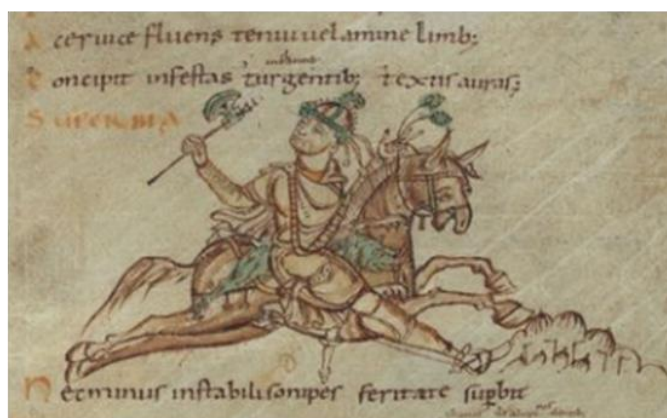 A ceruice fluens tenui uelamine limb;
Concipit infestas turgentib; textis auras;
SUPERBIA
Nec minus instabili sonipes feritate supbit